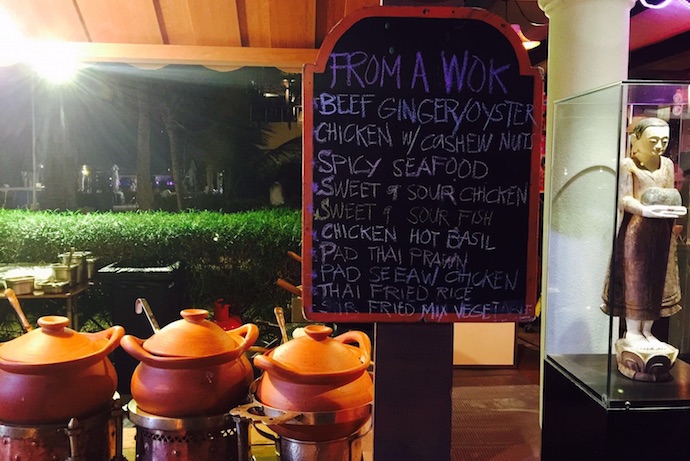 FROM A WOK
BEEF GINGER/OYSTER
CHICKEN W/ CASHEW NUT
SPICY SEAFOOD
SWEET & SOUR CHICKEN
SWEET & SOUR FISH
CHICKEN HOT BASIL
PAD THAI PRAWN
PAD SEEAW CHICKEN
THAI FRIED RICE
STIR FRIED MIX VEGETABLE